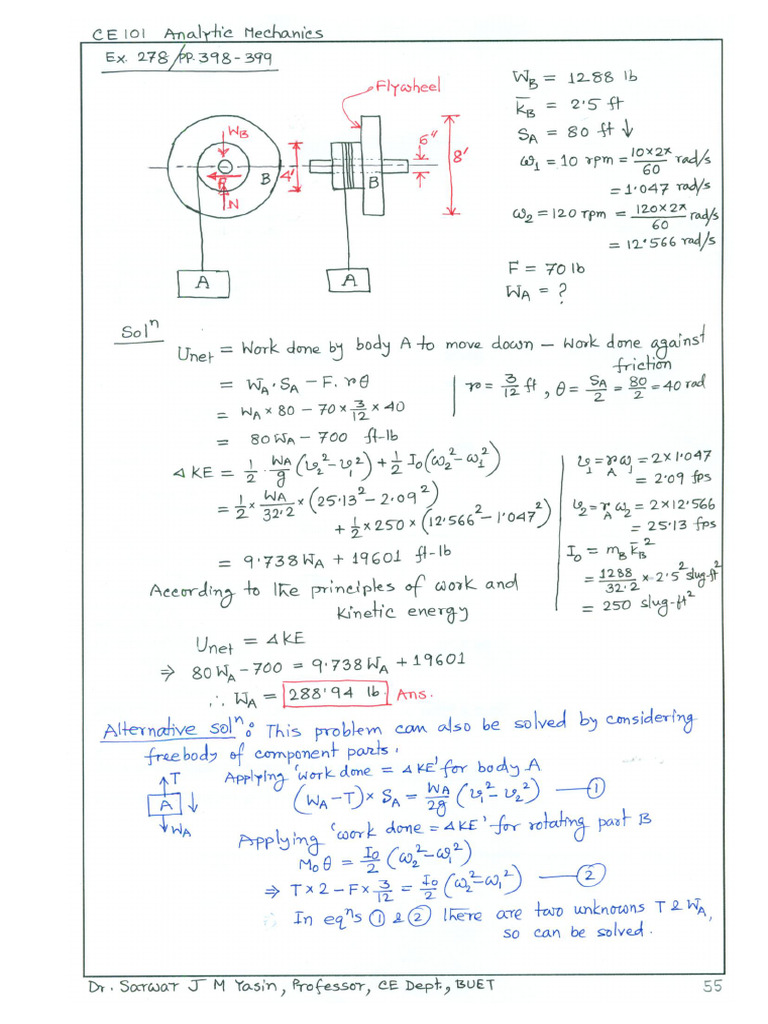 CE 101 Analytic Mechanics
Ex. 278/PP. 398-399
Flywheel
W_B
B
F
N
4'
A
6"
8'
B
A
W_B = 1288 lb
k̄_B = 2.5 ft
S_A = 80 ft ↓
ω₁ = 10 rpm = 10×2π/60 rad/s
= 1.047 rad/s
ω₂ = 120 rpm = 120×2π/60 rad/s
= 12.566 rad/s
F = 70 lb
W_A = ?
Solⁿ
U_net = Work done by body A to move down – Work done against friction
= W_A · S_A – F. rθ | r = 3/12 ft, θ = S_A/2 = 80/2 = 40 rad
= W_A × 80 – 70 × 3/12 × 40
= 80 W_A – 700 ft-lb
Δ KE = 1/2 · W_A/g (v₂² – v₁²) + 1/2 I₀ (ω₂² – ω₁²)
= 1/2 × W_A/32.2 × (25.13² – 2.09²)
+ 1/2 × 250 × (12.566² – 1.047²)
= 9.738 W_A + 19601 ft-lb
v₁ = r_A ω₁ = 2×1.047
= 2.09 fps
v₂ = r_A ω₂ = 2×12.566
= 25.13 fps
I₀ = m_B k̄_B²
= 1288/32.2 × 2.5² slug-ft²
= 250 slug-ft²
According to the principles of work and
kinetic energy
U_net = Δ KE
⇒ 80 W_A – 700 = 9.738 W_A + 19601
∴ W_A = 288.94 lb. Ans.
Alternative solⁿ: This problem can also be solved by considering
freebody of component parts.
T
A
W_A
Applying 'work done = Δ KE' for body A
(W_A – T) × S_A = W_A/2g (v₁² – v₂²) — ①
Applying 'work done = Δ KE' for rotating part B
M₀ θ = I₀/2 (ω₂² – ω₁²)
⇒ T × 2 – F × 3/12 = I₀/2 (ω₂² – ω₁²) — ②
In eqⁿs ① & ② there are two unknowns T & W_A,
so can be solved.
Dr. Sarwar J M Yasin, Professor, CE Dept., BUET 55